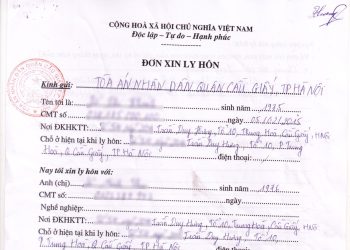 CỘNG HOÀ XÃ HỘI CHỦ NGHĨA VIỆT NAM
Độc lập - Tự do - Hạnh phúc
ĐƠN XIN LY HÔN
Kính gửi: TÒA ÁN NHÂN DÂN QUẬN CẦU GIẤY, TP HÀ NỘI
Tên tôi là: sinh năm : 1985
CMT số : 05/10/2015
Nơi ĐKHKTT: Trần Duy Hưng, Tổ 10, Trung Hoà, Cầu Giấy, HN
Chỗ ở hiện tại khi ly hôn : Trần Duy Hưng, Tổ 10, P. Trung
Hoà, Q. Cầu Giấy, TP. Hà Nội điện thoại:
Nay tôi xin ly hôn với:
Anh (chị) : sinh năm : 1986
CMT số:
Nghề nghiệp:
Nơi ĐKHKTT: Trần Duy Hưng, Tổ 10, Trung Hoà, Cầu Giấy, HN
Chỗ ở hiện tại khi ly hôn: Trần Duy Hưng, Tổ 10,
P. Trung Hoà, Q. Cầu Giấy, TP. Hà Nội điện thoại: